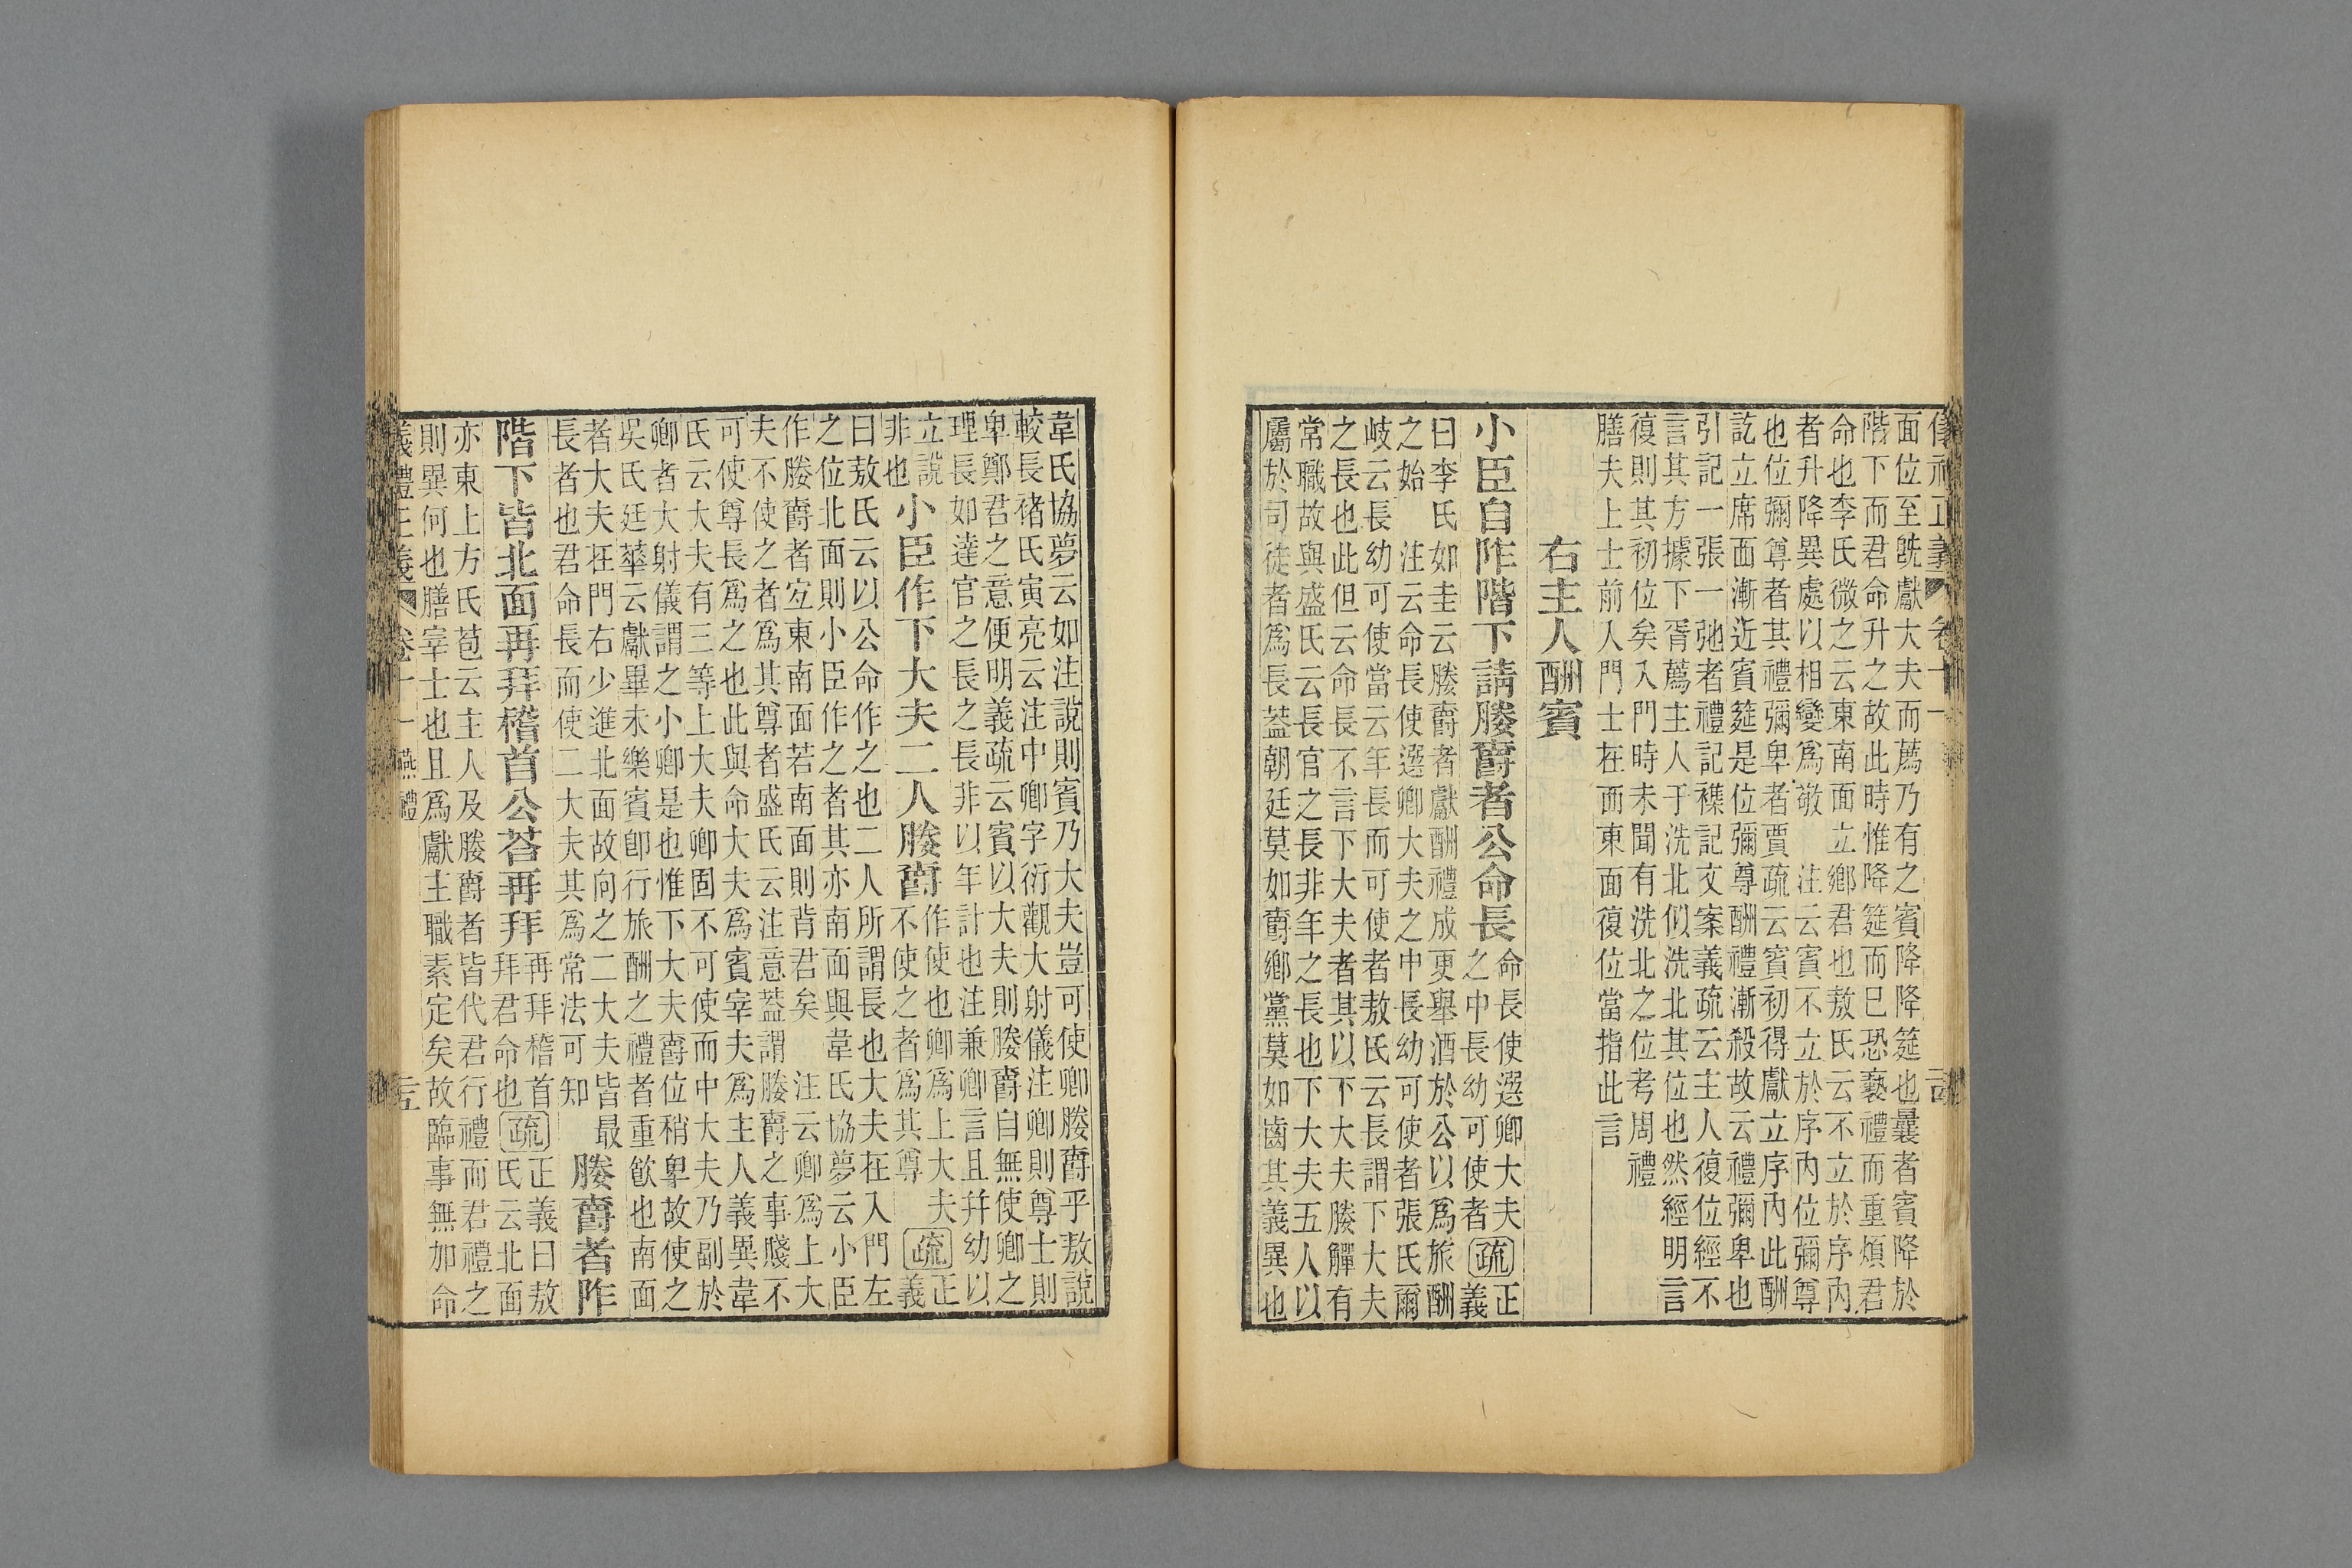 儀禮正義 卷十一
面位至旣獻大夫而薦乃有之賓降降筵也曩者賓降於
階下而君命升之故此時惟降筵而已恐褻禮而重煩君
命也李氏微之云東南面立鄉君也敖氏云不立於序內
者升降異處以相變爲敬 注云賓不立於序內位彌尊
也位彌尊者其禮彌卑者賈疏云賓初得獻立序內此酬
訖立席面漸近賓筵是位彌尊酬禮漸殺故云禮彌卑也
引記一張一弛者禮記襍記文案義疏云主人復位經不
言其方據下胥薦主人于洗北似洗北其位也然經明言
復則其初位矣入門時未聞有洗北之位考周禮
膳夫上士前人門士在西東面復位當指此言
右主人酬賓
小臣自阼階下請媵爵者公命長
命長使選卿大夫
之中長幼可使者
疏
正
義
曰李氏如圭云媵爵者獻酬禮成更舉酒於公以爲旅酬
之始 注云命長使選卿大夫之中長幼可使者張氏爾
岐云長幼可使當云年長而可使者敖氏云長謂下大夫
之長也此但云命長不言下大夫者其以下大夫媵觶有
常職故與盛氏云長官之長非年之長也下大夫五人以
屬於司徒者爲長葢朝廷莫如爵鄉黨莫如齒其義異也
韋氏協夢云如注說則賓乃大夫豈可使卿媵爵乎敖說
較長褚氏寅亮云注中卿字衍觀大射儀注卿則尊士則
卑鄭君之意便明義疏云賓以大夫則媵爵自無使卿之
理長如達官之長之長非以年計也注兼卿言且幷幼以
立說
非也
小臣作下大夫二人媵爵
作使也卿爲上大夫
不使之者爲其尊
疏
正
義
曰敖氏云以公命作之也二人所謂長也大夫在入門左
之位北面則小臣作之者其亦南面與韋氏協夢云小臣
作媵爵者宐東南面若南面則背君矣 注云卿爲上大
夫不使之者爲其尊者盛氏云注意葢謂媵爵之事賤不
可使尊長爲之也此與命大夫爲賓宰夫爲主人義異韋
氏云大夫有三等上大夫卿固不可使而中大夫乃副於
卿者大射儀謂之小卿是也惟下大夫爵位稍卑故使之
吳氏廷華云獻畢未樂賓卽行旅酬之禮者重飮也南面
者大夫在門右少進北面故向之二大夫皆最
長者也君命長而使二大夫其爲常法可知
媵爵者阼
階下皆北面再拜稽首公荅再拜
再拜稽首
拜君命也
疏
正義曰敖
氏云北面
亦東上方氏苞云主人及媵爵者皆代君行禮而君禮之
則異何也膳宰士也且爲獻主職素定矣故臨事無加命
儀禮正義 卷十一 燕禮